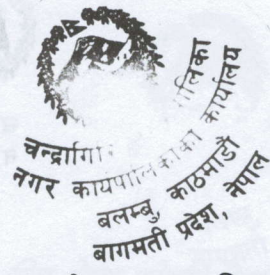 चन्द्रागिरि
नगर कार्यपालिकाको कार्यालय
बलम्बु, काठमाडौं
बागमती प्रदेश, नेपाल